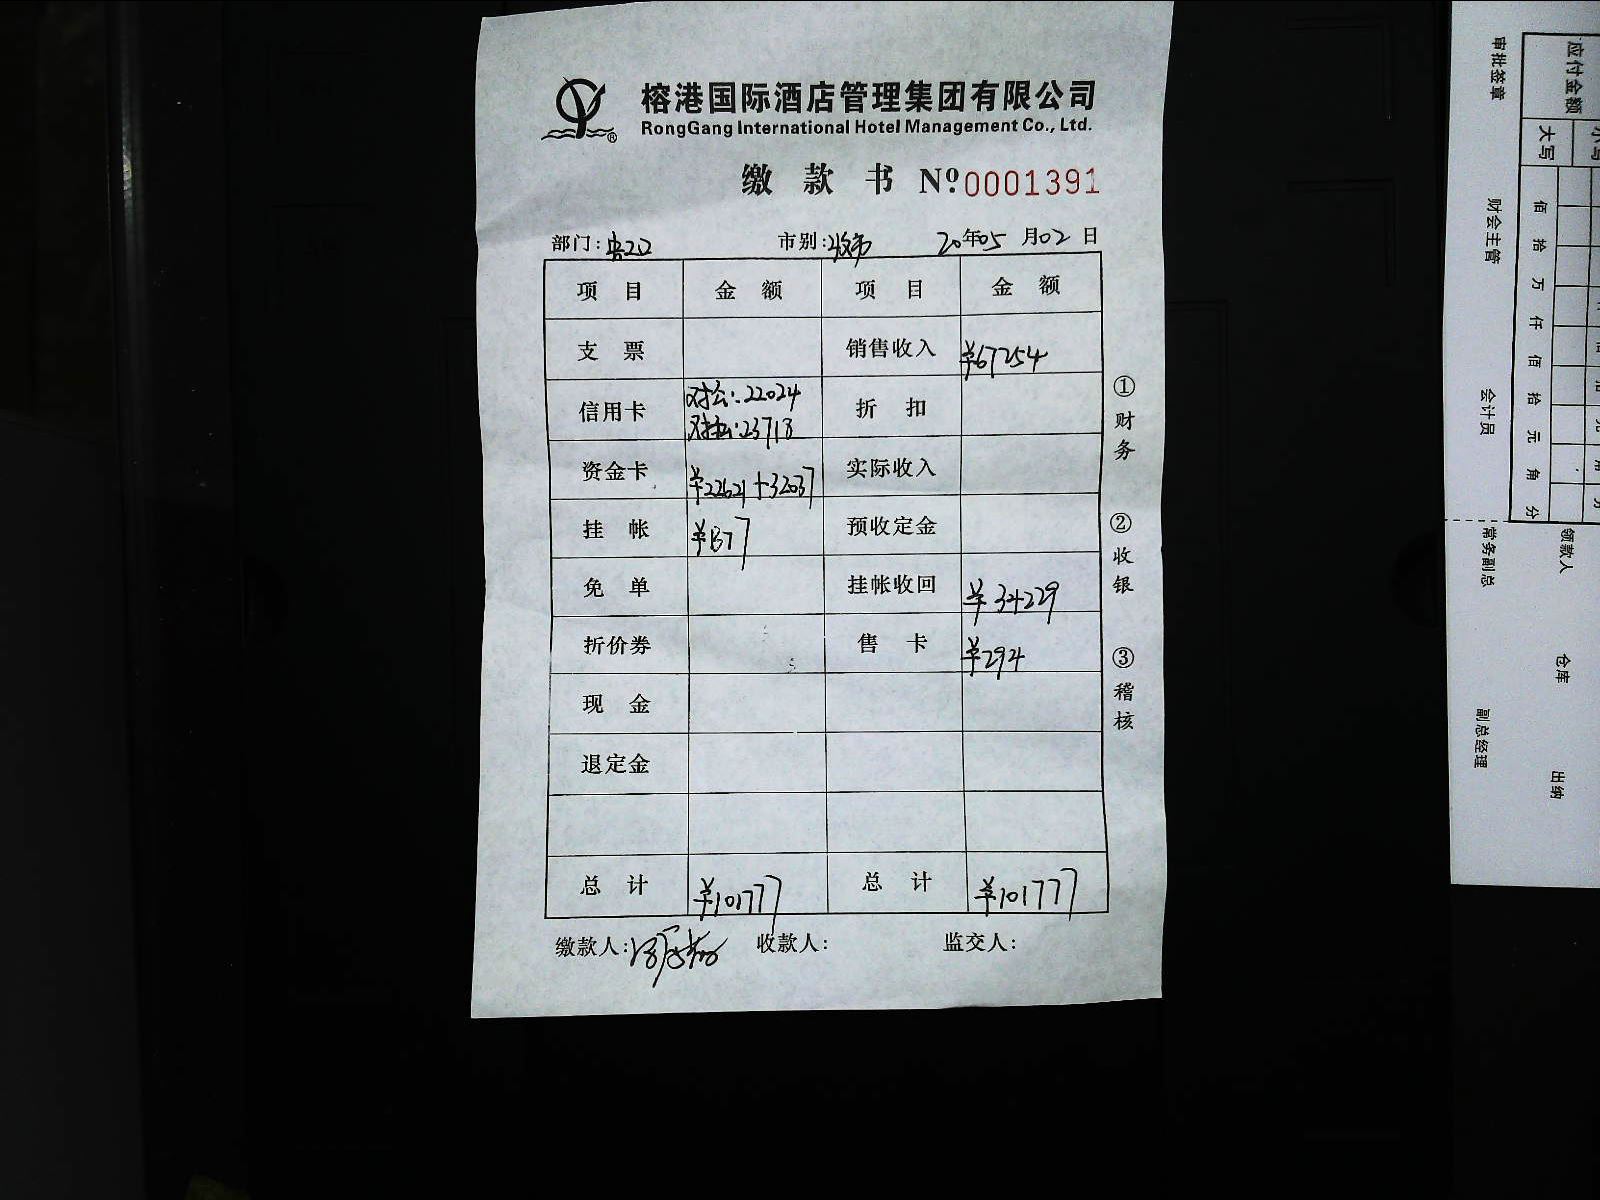 榕港国际酒店管理集团有限公司
RongGang International Hotel Management Co., Ltd.
缴 款 书 Nº 0001391
部门: 市别:收市 20年05月02日
项 目 金 额 项 目 金 额
支 票 销售收入 ¥67254
信用卡 对公:22024 折 扣
对私:23718
资金卡 ¥22621+32037 实际收入
挂 帐 ¥1377 预收定金
免 单 挂帐收回 ¥34229
折价券 售 卡 ¥294
现 金
退定金
总 计 ¥101777 总 计 ¥101777
缴款人: 收款人: 监交人:
①财务
②收银
③稽核
应付金额
大写
佰拾万仟佰拾元角分
审批签章 财会主管 会计员
常务副总 副总经理
领款人 仓库 出纳